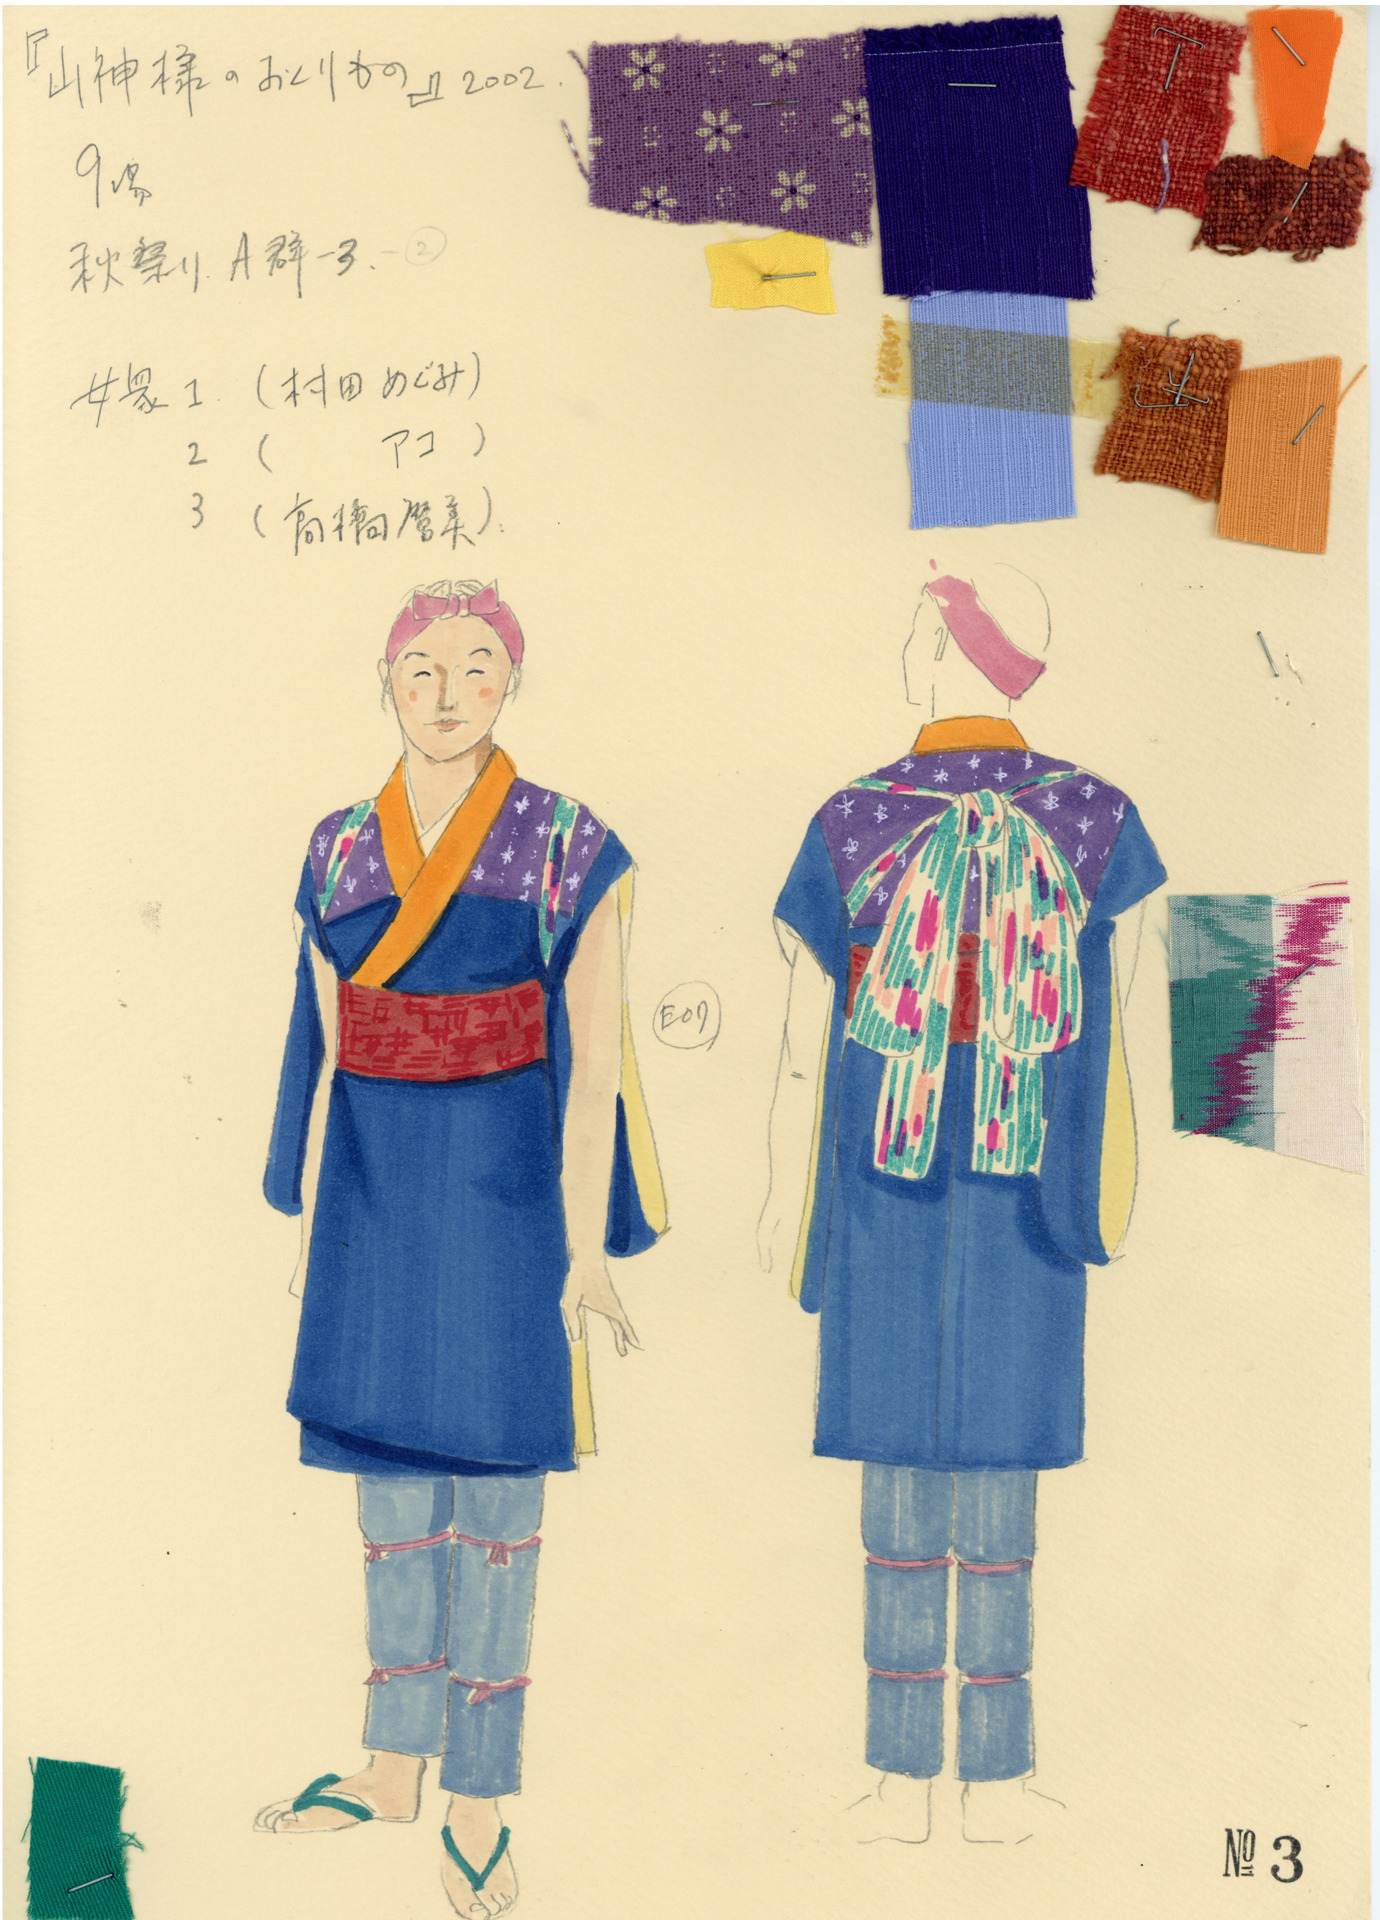 『山神様のおくりもの』2002.
9場
秋祭り. A群-3. -②
女衆 1 (村田めぐみ)
2 ( アコ )
3 (高橋麿美).
E07
No 3